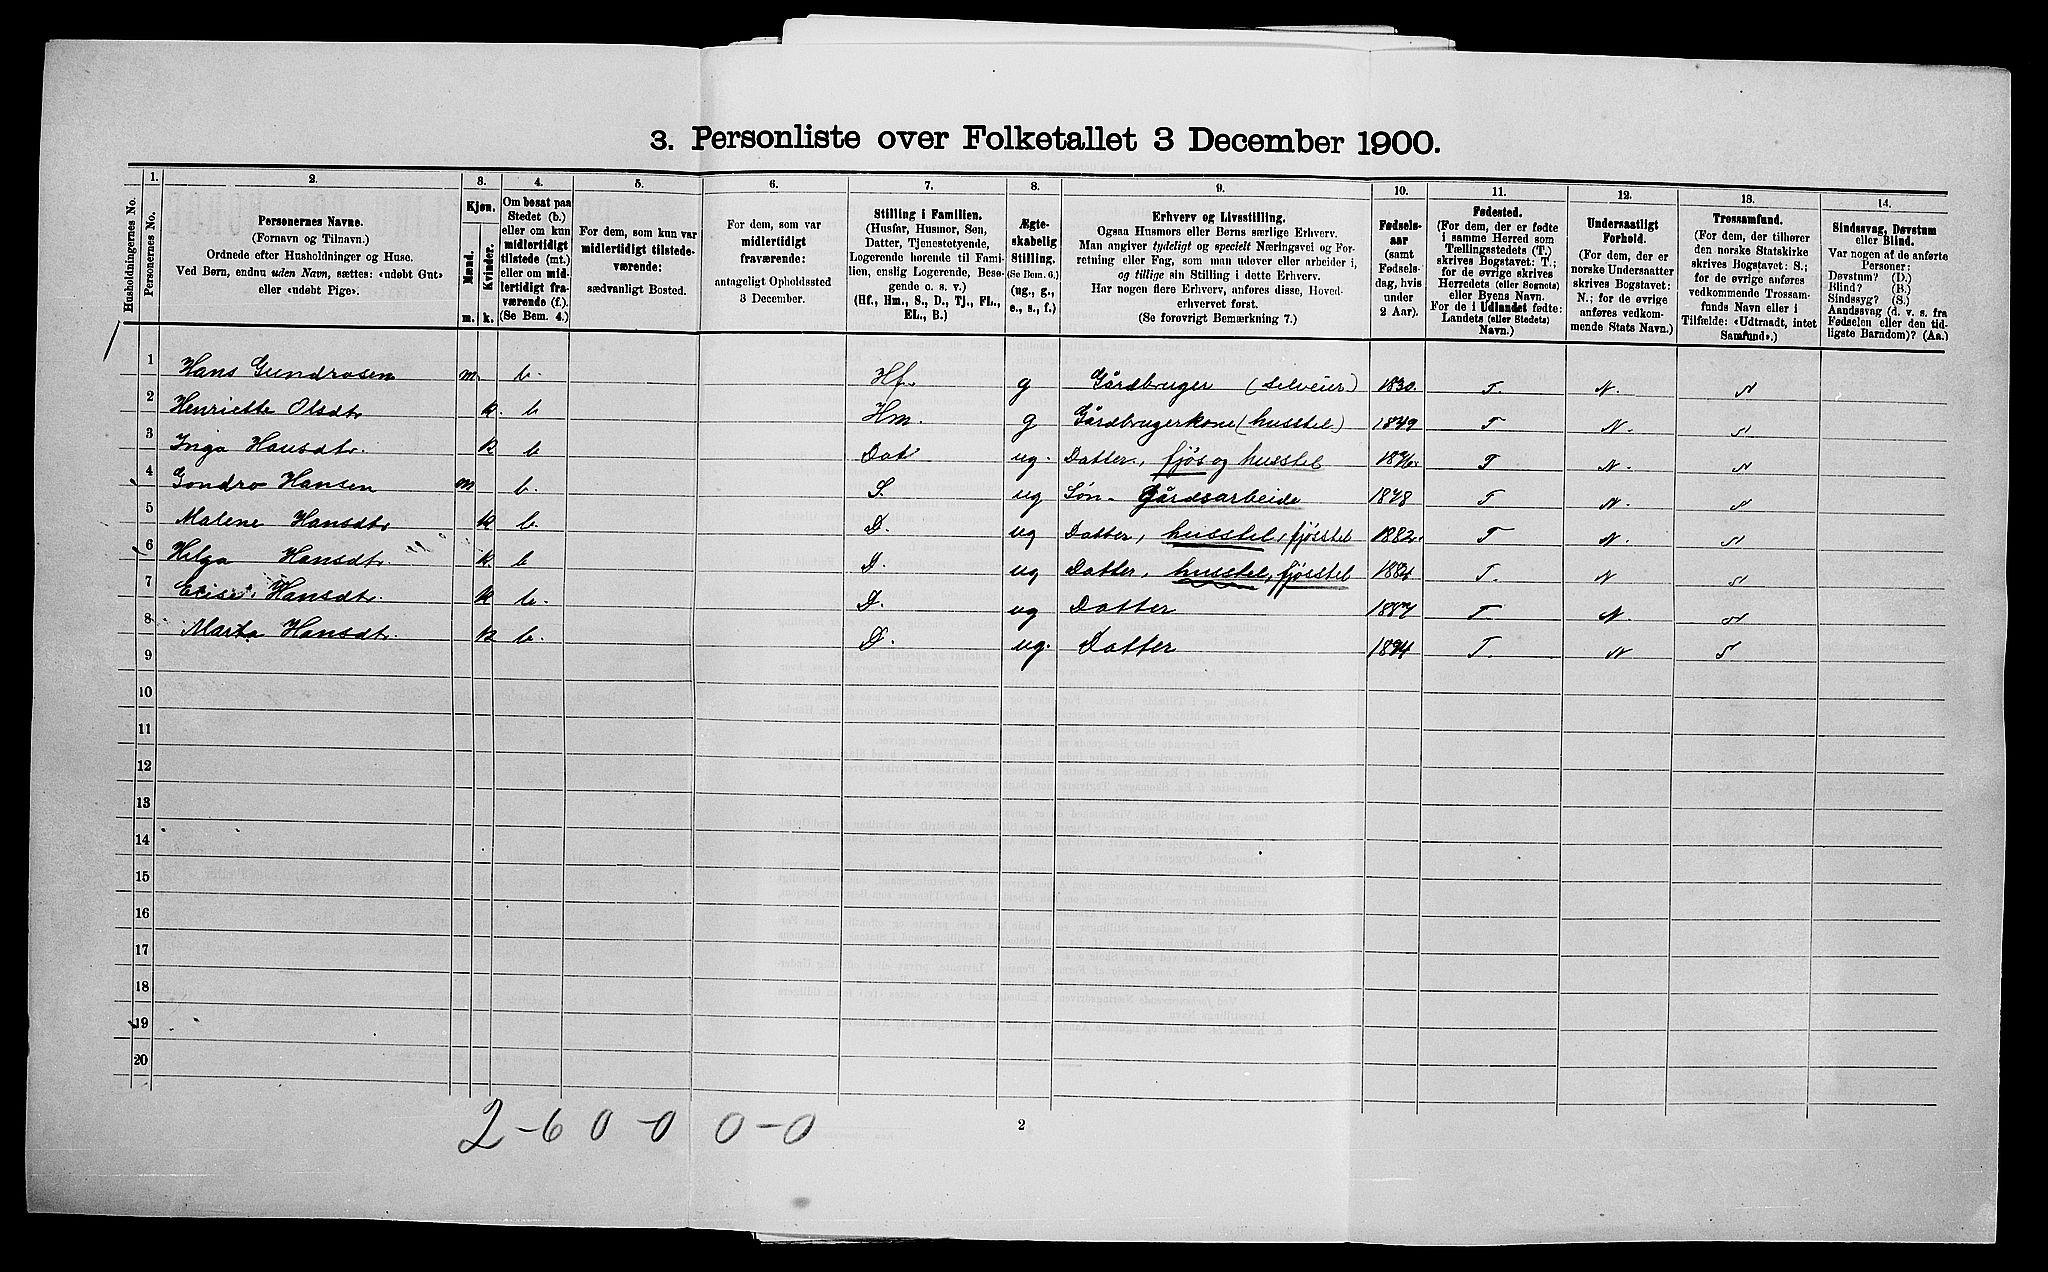 3. Personliste over Folketallet 3 December 1900.
1. 2. 3. 4. 5. 6. 7. 8. 9. 10. 11. 12. 13. 14.
Husholdningernes No.
Personernes No.
Personernes Navne.
(Fornavn og Tilnavn.)
Ordnede efter Husholdninger og Huse.
Ved Børn, endnu uden Navn, sættes: «udøbt Gut»
eller «udøbt Pige».
Kjøn.
Mænd.
Kvinder.
m. k.
Om bosat paa
Stedet (b.)
eller om kun
midlertidigt
tilstede (mt.)
eller om mid-
lertidigt fra-
værende (f.).
(Se Bem. 4.)
For dem, som kun var
midlertidigt tilstede-
værende:
sædvanligt Bosted.
For dem, som var
midlertidigt
fraværende:
antageligt Opholdssted
3 December.
Stilling i Familien.
(Husfar, Husmor, Søn,
Datter, Tjenestetyende,
Logerende hørende til Fami-
lien, enslig Logerende, Besø-
gende o. s. v.)
(Hf., Hm., S., D., Tj., FL.,
EL., B.)
Ægte-
skabelig
Stilling.
(Se Bem. 6.)
(ug., g.,
e., s., f.)
Erhverv og Livsstilling.
Ogsaa Husmors eller Børns særlige Erhverv.
Man angiver tydeligt og specielt Næringsvei og For-
retning eller Fag, som man udøver eller arbeider i,
og tillige sin Stilling i dette Erhverv.
Har nogen flere Erhverv, anføres disse, Hoved-
erhvervet først.
(Se forøvrigt Bemærkning 7.)
Fødsels-
aar
(samt
Fødsels-
dag, hvis
under
2 Aar).
Fødested.
(For dem, der er fødte
i samme Herred som
Tællingsstedets (T.)
skrives Bogstavet: T.;
for de øvrige skrives
Herredets (eller Sognets)
eller Byens Navn.
For de i Udlandet fødte:
Landets (eller Stedets)
Navn.)
Undersaatligt
Forhold.
(For dem, der er
norske Undersaatter
skrives Bogstavet:
N.; for de øvrige
anføres vedkom-
mende Stats Navn.)
Trossamfund.
(For dem, der tilhører
den norske Statskirke
skrives Bogstavet: S.;
for de øvrige anføres
vedkommende Trossam-
funds Navn eller i
Tilfælde: «Udtraadt, intet
Samfund».)
Sindssvag, Døvstum
eller Blind.
Var nogen af de anførte
Personer:
Døvstum? (D.)
Blind? (B.)
Sindssyg? (S.)
Aandssvag (d. v. s. fra
Fødselen eller den tid-
ligste Barndom)? (Aa.)
1 Hans Gundrosen m. b. Hf. g Gårdbruger (selveier) 1830. T. N. S
2 Henriette Olsdtr k. b Hm. g Gårdbrugerkone (husstel) 1849 T N. S
3 Inga Hansdtr. k b Dat ug. Datter, fjøs og husstel T N. S
4 Gondro Hansen m b. S. ug Søn - Gårdsarbeide 1878 T N. S
5 Malene Hansdtr k b. D. ug Datter, husstel, fjøsstel 1882. T N. S
6 Helga Hansdtr. k. b D. ug Datter, husstel, fjøsstel 1884 T. N S
7 Elise Hansdtr. k b. D. ug Datter T N. S
8 Marta Hansdtr. k b. D. ug. Datter 1894 T. N S
9
10
11
12
13
14
15
16
17
18
19
20
2 - 6 0 - 0 0 - 0
2